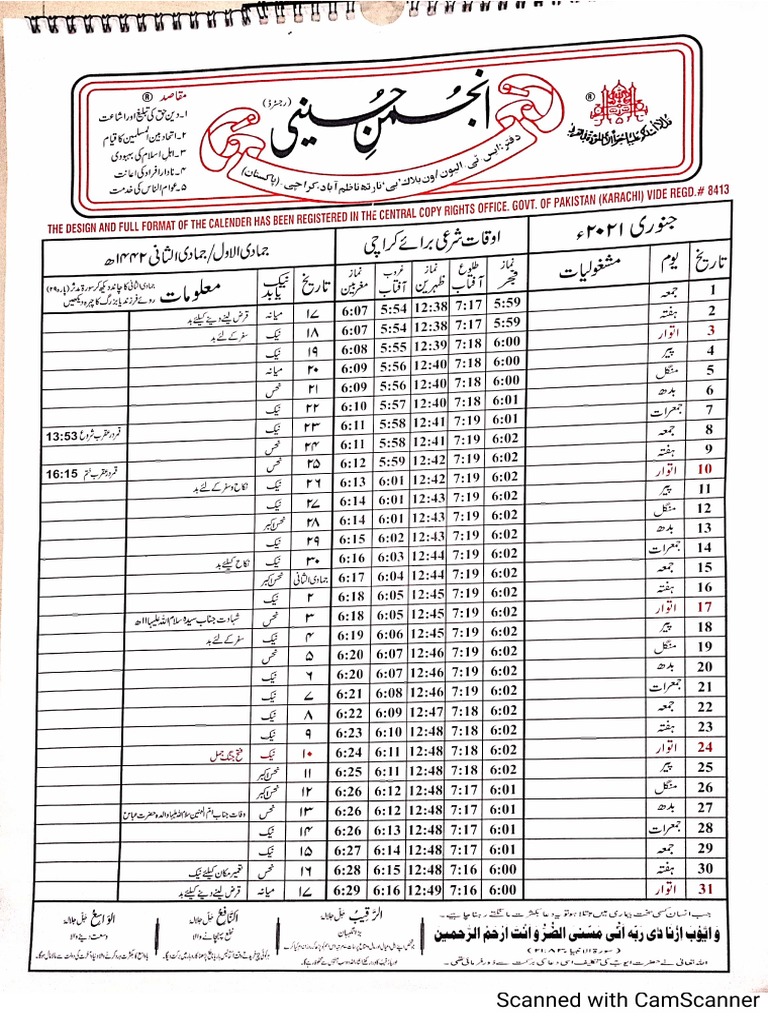 مقاصد ®
۱- دین حق کی تبلیغ اور اشاعت
۲- اتحاد بین المسلمین کا قیام
۳- اہل اسلام کی بہبودی
۴- نادار افراد کی اعانت
۵- عوام الناس کی خدمت
انجمن حسینی (رجسٹرڈ)
®
دفتر: ایس ٹی، الیون اون بلاک "بی" نارتھ ناظم آباد، کراچی، (پاکستان)
THE DESIGN AND FULL FORMAT OF THE CALENDER HAS BEEN REGISTERED IN THE CENTRAL COPY RIGHTS OFFICE. GOVT. OF PAKISTAN (KARACHI) VIDE REGD.# 8413
جنوری ۲۰۲۱ء اوقات شرعی برائے کراچی جمادی الاول/جمادی الثانی ۱۴۴۲ھ
تاریخ یوم مشغولیات نماز فجر طلوع آفتاب نماز ظہرین غروب آفتاب نماز مغربین تاریخ نیک یا بد معلومات جمادی الثانی کا چاند دیکھ کر سورۃ مدثر (پارہ ۲۹) روئے فرزند یا بزرگ کا چہرہ دیکھیں
1 جمعہ 5:59 7:17 12:38 5:54 6:07 ۱۷ میانہ قرض لینے دینے کیلئے بد
2 ہفتہ 5:59 7:17 12:38 5:54 6:07 ۱۸ نیک سفر کے لئے بد
3 اتوار 6:00 7:18 12:39 5:55 6:08 ۱۹ نیک
4 پیر 6:00 7:18 12:40 5:56 6:09 ۲۰ میانہ
5 منگل 6:00 7:18 12:40 5:56 6:09 ۲۱ نحس
6 بدھ 6:01 7:18 12:40 5:57 6:10 ۲۲ نیک
7 جمعرات 6:01 7:19 12:41 5:58 6:11 ۲۳ نیک قمر در عقرب شروع 13:53
8 جمعہ 6:02 7:19 12:41 5:58 6:11 ۲۴ نحس
9 ہفتہ 6:02 7:19 12:42 5:59 6:12 ۲۵ نحس قمر در عقرب ختم 16:15
10 اتوار 6:02 7:19 12:42 6:01 6:13 ۲۶ نیک نکاح و سفر کے لئے بد
11 پیر 6:02 7:19 12:43 6:01 6:14 ۲۷ نیک
12 منگل 6:02 7:19 12:43 6:01 6:14 ۲۸ نحس اکبر
13 بدھ 6:02 7:19 12:43 6:02 6:15 ۲۹ نیک
14 جمعرات 6:02 7:19 12:44 6:03 6:16 ۳۰ نیک نکاح کیلئے بد
15 جمعہ 6:02 7:19 12:44 6:04 6:17 جمادی الثانی نحس اکبر
16 ہفتہ 6:02 7:19 12:45 6:05 6:18 ۲ نیک
17 اتوار 6:02 7:19 12:45 6:05 6:18 ۳ نحس شہادت جناب سیدہ سلام اللہ علیہا ۱۱ھ
18 پیر 6:02 7:19 12:45 6:06 6:19 ۴ نیک سفر کے لئے بد
19 منگل 6:02 7:19 12:46 6:07 6:20 ۵ نحس
20 بدھ 6:02 7:19 12:46 6:07 6:20 ۶ نیک
21 جمعرات 6:02 7:19 12:46 6:08 6:21 ۷ نیک
22 جمعہ 6:02 7:18 12:47 6:09 6:22 ۸ نیک
23 ہفتہ 6:02 7:18 12:48 6:10 6:23 ۹ نیک
24 اتوار 6:02 7:18 12:48 6:11 6:24 ۱۰ نیک فتح جنگ جمل
25 پیر 6:02 7:18 12:48 6:11 6:25 ۱۱ نحس اکبر
26 منگل 6:01 7:17 12:48 6:12 6:26 ۱۲ نحس اکبر
27 بدھ 6:01 7:17 12:48 6:12 6:26 ۱۳ نحس وفات جناب ام البنین سلام اللہ علیہا والدہ حضرت عباس
28 جمعرات 6:01 7:17 12:48 6:13 6:26 ۱۴ نیک
29 جمعہ 6:01 7:17 12:48 6:14 6:27 ۱۵ نیک
30 ہفتہ 6:00 7:16 12:48 6:15 6:28 ۱۶ نحس تعمیر مکان کیلئے نیک
31 اتوار 6:00 7:16 12:49 6:16 6:29 ۱۷ میانہ قرض لینے دینے کیلئے بد
جب انسان کسی سخت بیماری میں مبتلا ہو تو یہ دعا بکثرت مانگتے رہنا چاہیے۔
وَاَیُّوبَ اِذْ نَادٰی رَبَّہٗ اَنِّی مَسَّنِیَ الضُّرُّ وَاَنْتَ اَرْحَمُ الرّٰحِمِیْنَ
اللہ تعالیٰ نے حضرت ایوبؑ کی تکلیف اسی دعا کی برکت سے دور فرمائی تھی۔
اَلرَّقِیْبُ جل جلالہ
بڑا نگہبان
اَلنَّافِعُ جل جلالہ
نفع پہنچانے والا
اَلْوَاسِعُ جل جلالہ
وسعت دینے والا
Scanned with CamScanner